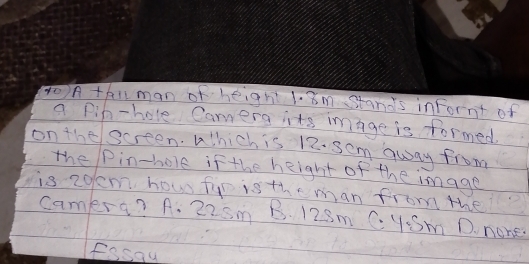 40) A tall man of height 1.8m stands infornt of
a Pin-hole Camera its image is formed.
on the screen. Which is 12.5cm away from
the Pin-hole if the height of the image
is 20cm. how far is the man from the
Camera? A. 225m B. 125m C. 4.5m D. none.
Essay